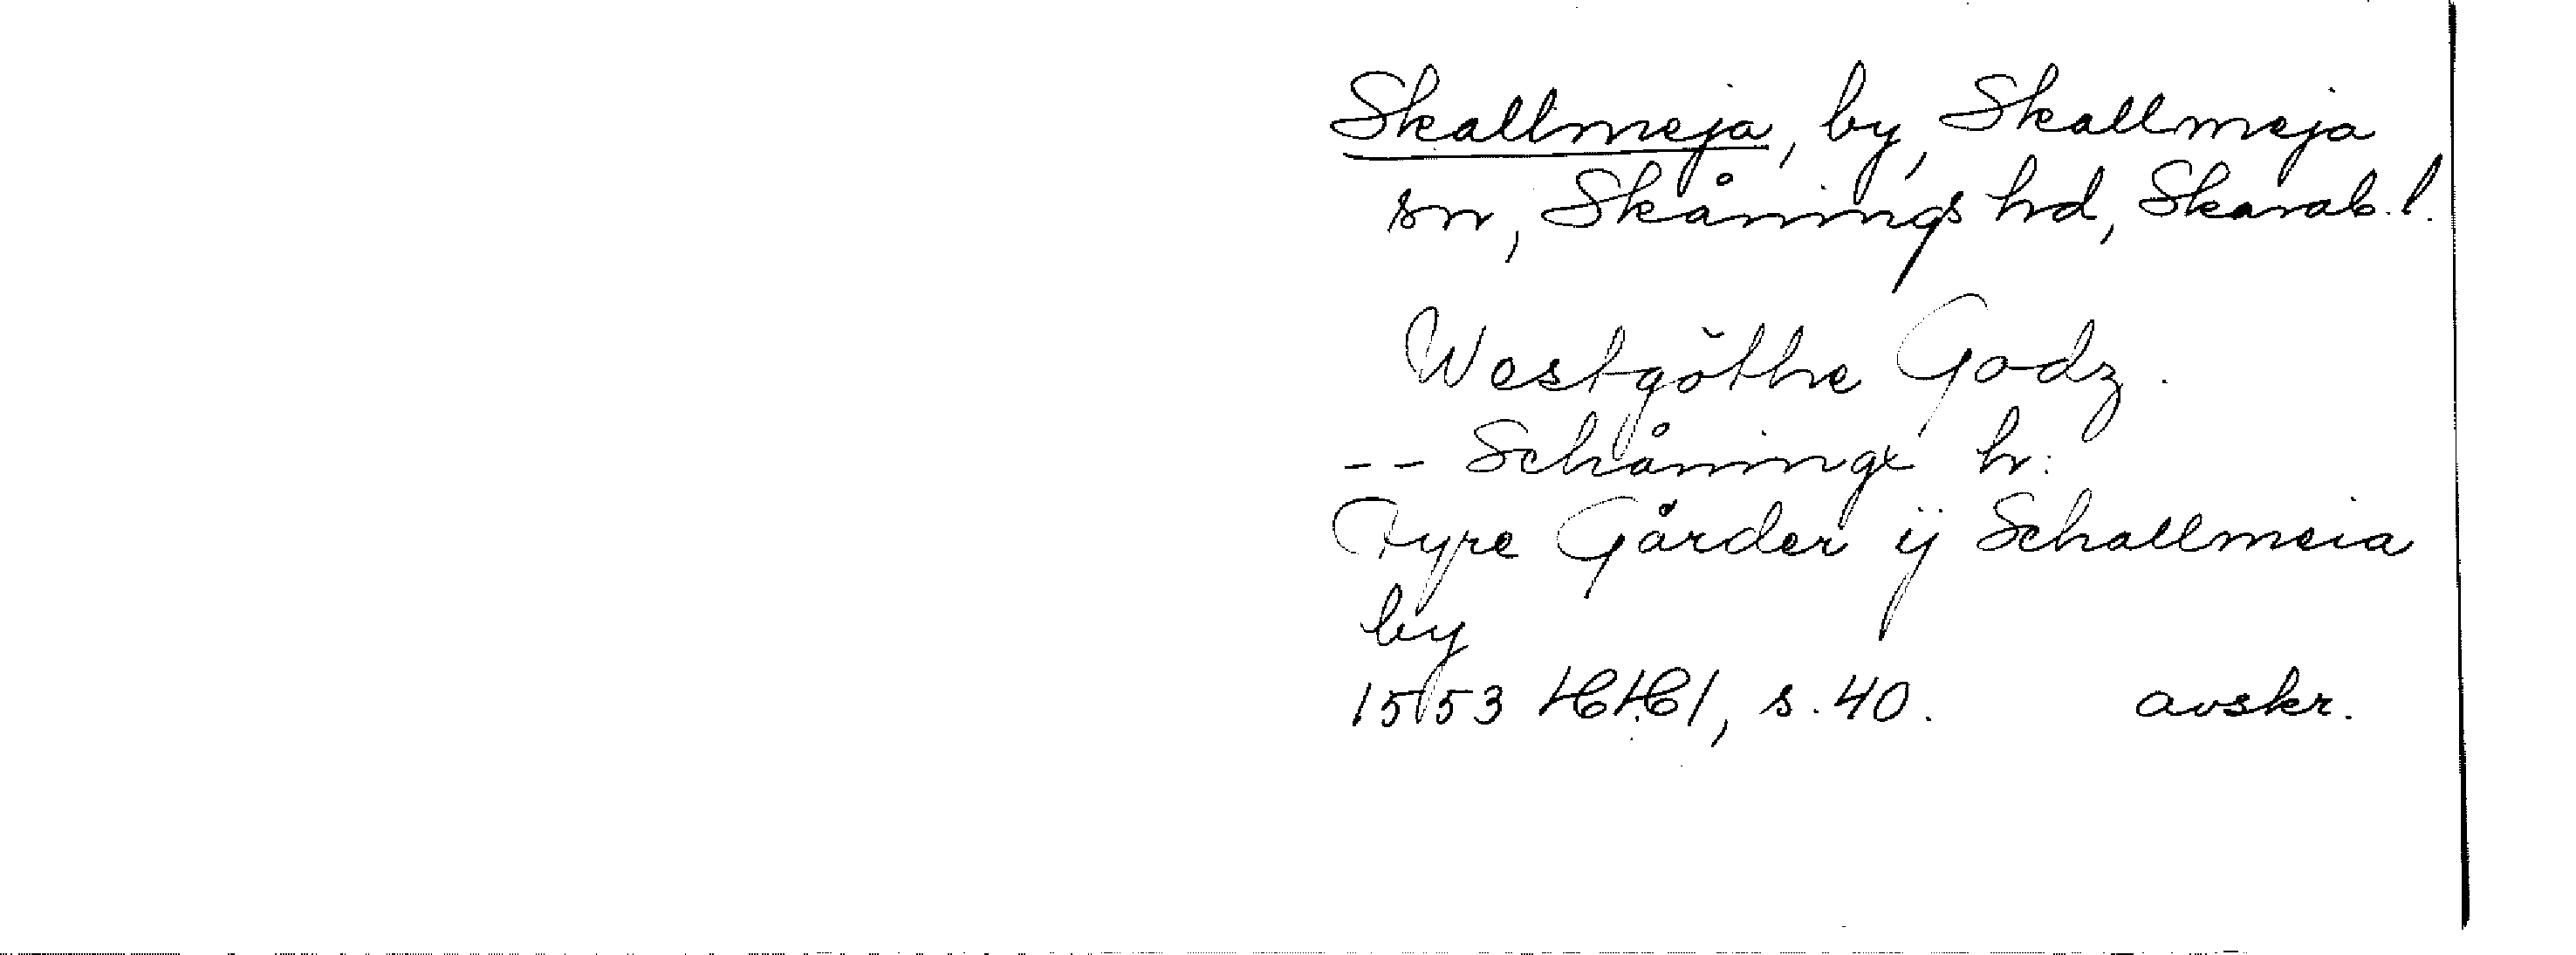 Skallmeja, by, Skallmeja
sn, Skånings hd, Skarab. l.
Westgöthe Godz.
-- Schåningx hr:
Fyre Gårder ÿ Schallmeia
by
1553 HH1, s. 40. avskr.